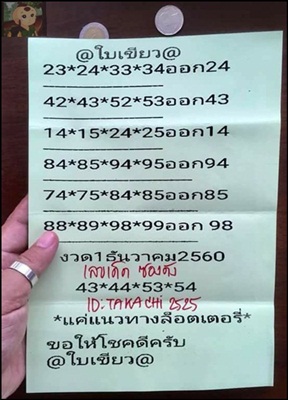 @ใบเขียว@
23*24*33*34ออก24
42*43*52*53ออก43
14*15*24*25ออก14
84*85*94*95ออก94
74*75*84*85ออก85
88*89*98*99ออก 98
งวด1ธันวาคม2560
เลขเด็ด ซองดัง
43*44*53*54
ID:TAKACHI 2525
*แค่แนวทางล็อตเตอรี่*
ขอให้โชคดีครับ
@ใบเขียว@